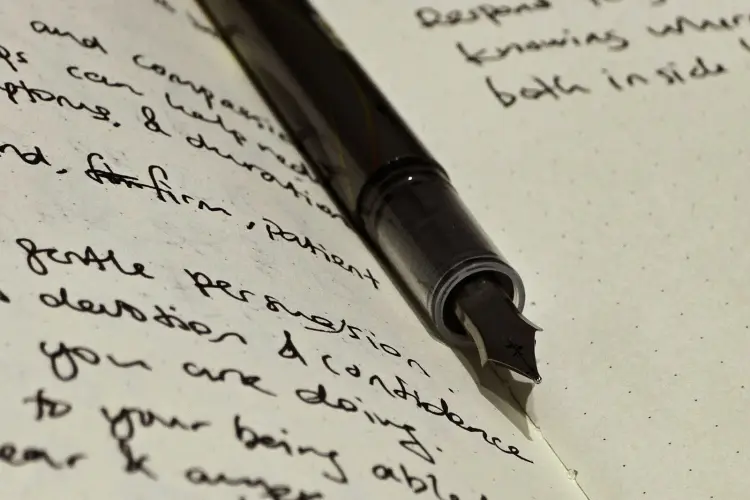 and compassio
ps can help red
ptoms. & duration
nd. firm, patient
gentle persuasion.
devotion & confidence
you are doing.
to your being able
ear & anger
Respond to
knowing wher
both inside